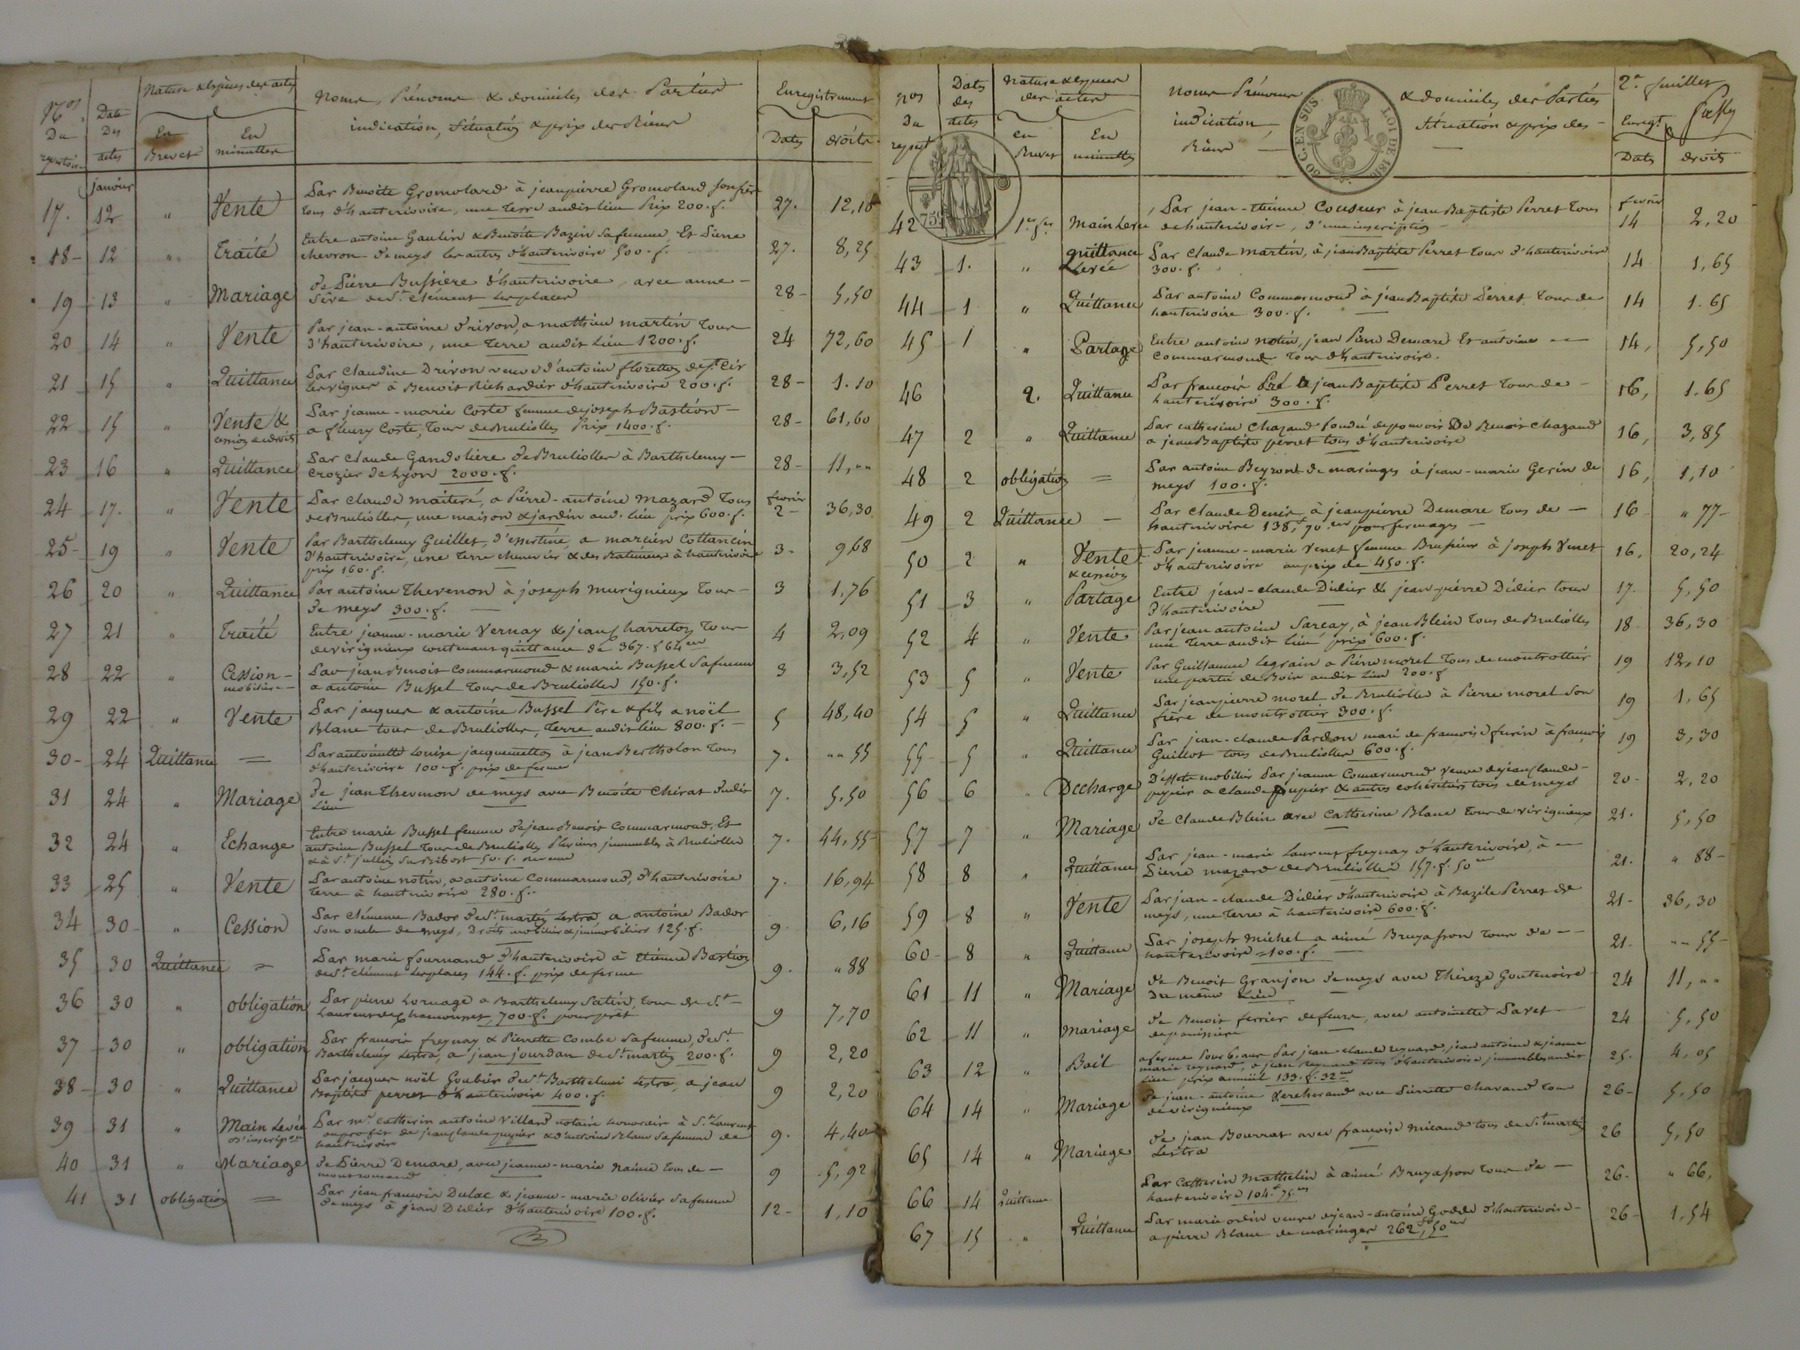 Nos Du repertoire
Date Des actes
Nature & Espèces des actes
En Brevet
En minuttes
Noms, Prénoms & domiciles des Parties
indication, Situation & prix des Biens
Enregistrement
Dates
droits
janvier
17. 12 " Vente Par Benoite Gromolard à jeanpierre Gromolard son frère 27. 12,10
tous d'hauterivoire, une terre audit lieu Prix 200.f.
18 - 12 " Traité Entre antoine Gaulin & Benoite Bazin sa femme Et Pierre 27. 8,25
chevron de meys les autres d'hauterivoire 500.f.
19 13 " Mariage de Pierre Bussiere d'hauterivoire, avec anne 28 - 5,50
Seve de St clément les places
20 14 " Vente Par jean-antoine Drivon, a mathieu martin Tous 24 72,60
d'hauterivoire, une Terre audit lieu 1200.f.
21 15 " Quittance Par Claudine Drivon veuve d'antoine florettes de St Cir 28 - 1.10
les vignes à Benoit Richardier d'hauterivoire 200.f.
22 15 " Vente & Par jeanne-marie Coste femme de joseph Bastion 28 - 61,60
cession de droits a fleury Coste, Tous de Brullioles Prix 1400.f.
23 16 " Quittance Par Claude Gandoliere de Brullioles à Barthelemy 28 - 11,""
Crozier de Lyon 2000.f.
24 17. " Vente Par Claude maitire, a Pierre-antoine mazard Tous fevrier 2 - 36,30
de Brullioles, une maison & jardin aud. lieu prix 600.f.
25 - 19 " Vente Par Barthelemy Guillet, d'essertine, a marcien Cottancin 3. 9,68
d'hauterivoire, une terre cheneviere & des Batimens à hauterivoire
prix 160.f.
26 20 " Quittance Par antoine Thevenon à joseph murigneux Tous 3 1,76
de meys 300.f.
27 21 " Traité Entre jeanne-marie Vernay & jean Charreton Tous 4 2,09
de virigneux contenant quittance de 367.f 64 cs
28 22 " Cession mobiliere Par jean Benoit Commarmond & marie Bussel sa femme 3 3,52
a antoine Bussel Tous de Brullioles 150.f.
29 22 " Vente Par jacques & antoine Bussel Père & fils a noël 5 48,40
Blanc tous de Brullioles, terre audit lieu 800.f.
30 - 24 Quittance = Par antoinette Louise jacquemetton à jean Bertholon tous 7. "" 55
d'hauterivoire 100.f. prix de ferme
31 24 " Mariage de jean Thermon de meys avec Benoite Chirat dudit 7. 5,50
lieu
32 24 " Echange Entre marie Bussel femme de jean Benoit Commarmond, Et 7. 44,55
antoine Bussel Tous de Brullioles Plusieurs immeubles à Brullioles
& à St jullien sur Bibost 50.f. revenu
33 25 " Vente Par antoine notin, a antoine Commarmond, d'hauterivoire 7. 16,94
terre à hauterivoire 280.f.
34 30 " Cession Par Clémence Bador de St martin Lestra a antoine Bador 9. 6,16
son oncle de meys, droits mobiliers & immobiliers 125.f.
35 30 Quittance = Par marie fournand d'hauterivoire à Etienne Bastion 9. " 88
de St clément les places 144.f. prix de ferme
36 30 " obligation Par pierre Lornage a Barthelemy Satin, tous de St 9 7,70
Laurent de chamousset, 700.f. pour prêt
37 30 " obligation Par francois freynay & Pierrette Combe sa femme, de St 9 2,20
Barthelemy Lestra, a jean jourdan de St martin 200.f.
38 - 30 " Quittance Par jacques noël Goubier de St Barthelemi Lestra, a jean 9 2,20
Baptiste perret d'hauterivoire 400.f.
39 31 " Main Levée d'inscripon Par mr. catherin antoine Villard notaire honoraire à St Laurent 9. 4,40
au profit de jean claude pupier & d'antoine Blanc sa femme de
hauterivoire
40 31 " Mariage de Pierre Demare, avec jeanne-marie naime tous de 9 5,92
montromand
41 31 obligation = Par jean francois Dulac & jeanne-marie olivier sa femme 12 - 1,10
de meys à jean Didier d'hauterivoire 100.f.
nos du repert
Dates des actes
Nature & Especes des actes
en Brevet
En minuttes
Noms Prénoms & domiciles des Parties
indication, situation & prix des
Biens
30 C. EN SUS. LOI DE 18
759
2e feuillet
Enregt
Dates
droits
42 1er fer Main Levée Par jean-Etienne Couseur à jean Baptiste Perret tous fevrier 14 2,20
de hauterivoire, d'une inscription
43 1. " Quittance Levée Par Claude martin, à jean Baptiste Perret tous d'hauterivoire 14 1,65
300.f.
44 1 " Quittance Par antoine Commarmond à jean Baptiste Perret Tous de 14 1.65
hauterivoire 300.f.
45 1 " Partage Entre antoine notin, jean Pierre Demare Et antoine 14, 5,50
Commarmond Tous d'hauterivoire.
46 2. Quittance Par francois Pré à jean Baptiste Perret tous de 16, 1.65
hauterivoire 300.f.
47 2 " Quittance Par catherine Chazaud fondé de pouvoir De Benoit Chazaud 16, 3,85
a jean Baptiste perret tous d'hauterivoire
48 2 obligation = Par antoine Beyront de maringes à jean-marie Gerin de 16, 1,10
meys 100.f.
49 2 Quittance - Par Claude Denis à jean pierre Demare tous de 16 " 77 -
hauterivoire 138,f 70 cs pour fermages
50 2 " Vente & cession Par jeanne-marie Venet femme Brussieux à joseph Venet 16, 20,24
d'hauterivoire au prix de 450.f.
51 3 " Partage Entre jean-claude Didier & jean pierre Didier tous 17. 5,50
d'hauterivoire
52 4 " Vente Par jean antoine Sarcay, à jean Blein Tous de Brullioles 18 36,30
une Terre audit lieu prix 600.f.
53 5 " Vente Par Guillaume Legrain a Pierre morel Tous de montrottier 19 12,10
une partie de Bois audit lieu 200.f
54 5 " Quittance Par jean pierre morel de Brullioles à Pierre morel son 19 1,65
frère de montrottier 300.f.
55 - 5 " Quittance Par jean-claude Pardon mari de francoise furin à francois 19 3,30
Guillot tous de Brullioles 600.f.
56 6 " Decharge d'effets mobiliers Par jeanne Commarmond veuve de jean claude 20 - 2,20
pupier a claude pupier & autres cohéritiers tous de meys
57 7 " Mariage de Claude Blein avec Catherine Blanc Tous de virigneux 21. 5,50
58 8 " Quittance Par jean-marie Laurent freynay d'hauterivoire, à 21. " 88 -
Pierre mazard de Brullioles 157.f. 50 cs
59 8 " Vente Par jean-claude Didier d'hauterivoire à Bazile Perret de 21 - 36,30
meys, une Terre à hauterivoire 600.f.
60 - 8 " Quittance Par joseph Michel a aimé Bruyasson Tous de 21. "" 55 -
hauterivoire 100.f.
61 11 " Mariage de Benoit Granjon de meys avec Théreze Goutenoire 24 11,""
du même Lieu
62 11 " Mariage de Benoit ferrier de feurs, avec antoinette Lavet 24 5,50
de panissiere
63 12 " Bail a ferme pour 6 ans Par jean-claude reynard, jean antoine & jeanne 25. 4,05
marie reynard, à jean reynard tous d'hauterivoire, immeubles audit
lieu prix annuel 133.f. 32 cs
64 14 " Mariage de jean-antoine Lerecherand avec Pierrette Chavand Tous 26 - 5,50
de virigneux
65 14 " Mariage de jean Bourrat avec françoise Micaud tous de St martin 26 5,50
Lestra
66 14 Quittance Par Catherin Mathelin à aimé Bruyasson Tous de 26 - " 66,
hauterivoire 104.f 75 cs
67 15 " Quittance Par marie odin veuve de jean-antoine Godde d'hauterivoire 26 - 1,54
a pierre Blanc de maringes 262,f 50 cs